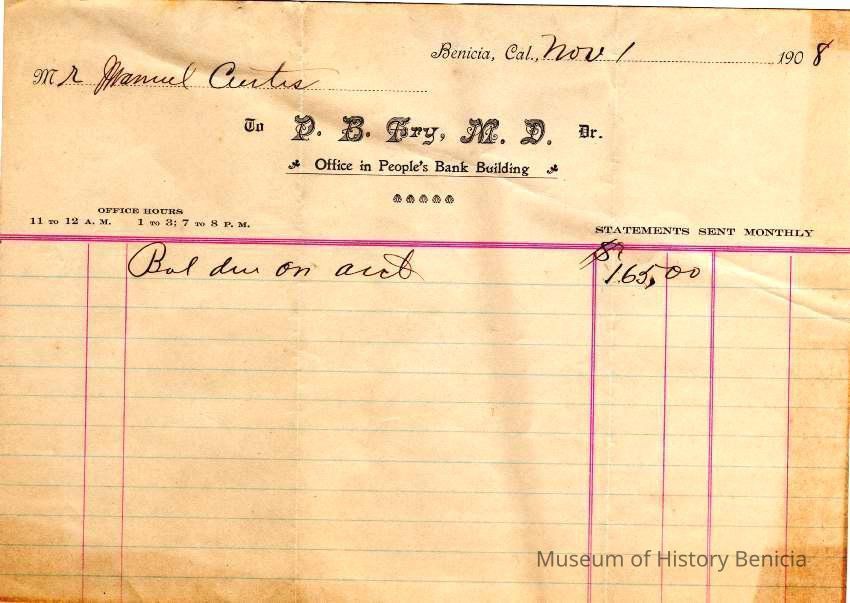 Benicia, Cal., Nov 1 1908
Mr Manuel Curtis
To P. B. Fry, M. D. Dr.
Office in People's Bank Building
OFFICE HOURS
11 TO 12 A. M. 1 TO 3; 7 TO 8 P. M.
STATEMENTS SENT MONTHLY
Bal due on acct $165,00
Museum of History Benicia